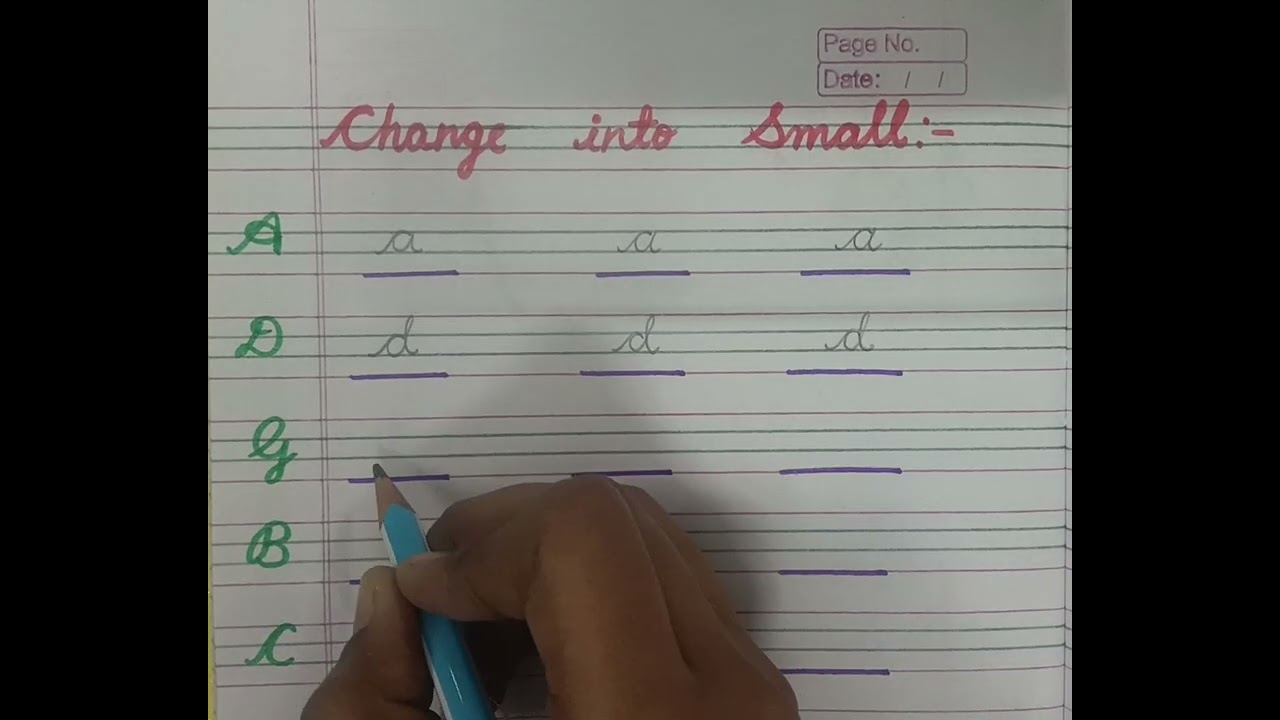 Page No.
Date: / /
Change into Small:-
A a a a
D d d d
G
B
C